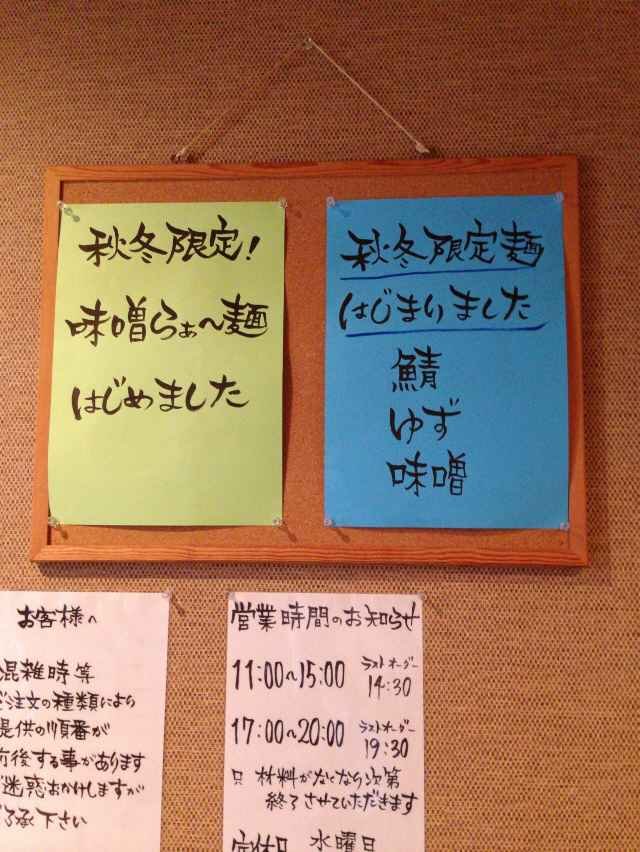 秋冬限定!
味噌らぁ〜麺
はじめました
秋冬限定麺
はじまりました
鯖
ゆず
味噌
お客様へ
混雑時等
ご注文の種類により
提供の順番が
前後する事があります
ご迷惑おかけしますが
ご了承下さい
営業時間のお知らせ
11:00〜15:00 ラストオーダー 14:30
17:00〜20:00 ラストオーダー 19:30
只 材料がなくなり次第
終了させていただきます
定休日 水曜日